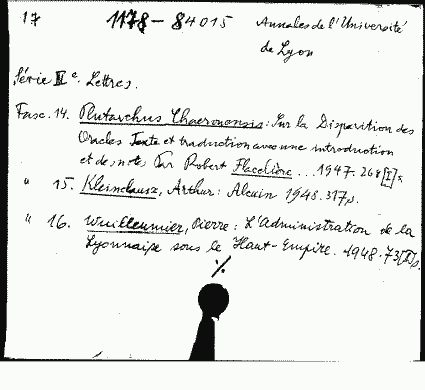 17 1178-84015 Annales de l'Université
de Lyon
Série III e. Lettres.
Fasc. 14. Plutarchus Chaeronensis: Sur la Disparition des
Oracles Texte et traduction avec une introduction
et des notes Par Robert Flacelière ... 1947. 268[I]s.
" 15. Kleinclausz, Arthur: Alcuin 1948. 317s.
" 16. Wuilleumier, Pierre: L'Administration de la
Lyonnaise sous le Haut-Empire. 1948. 73[2]s.